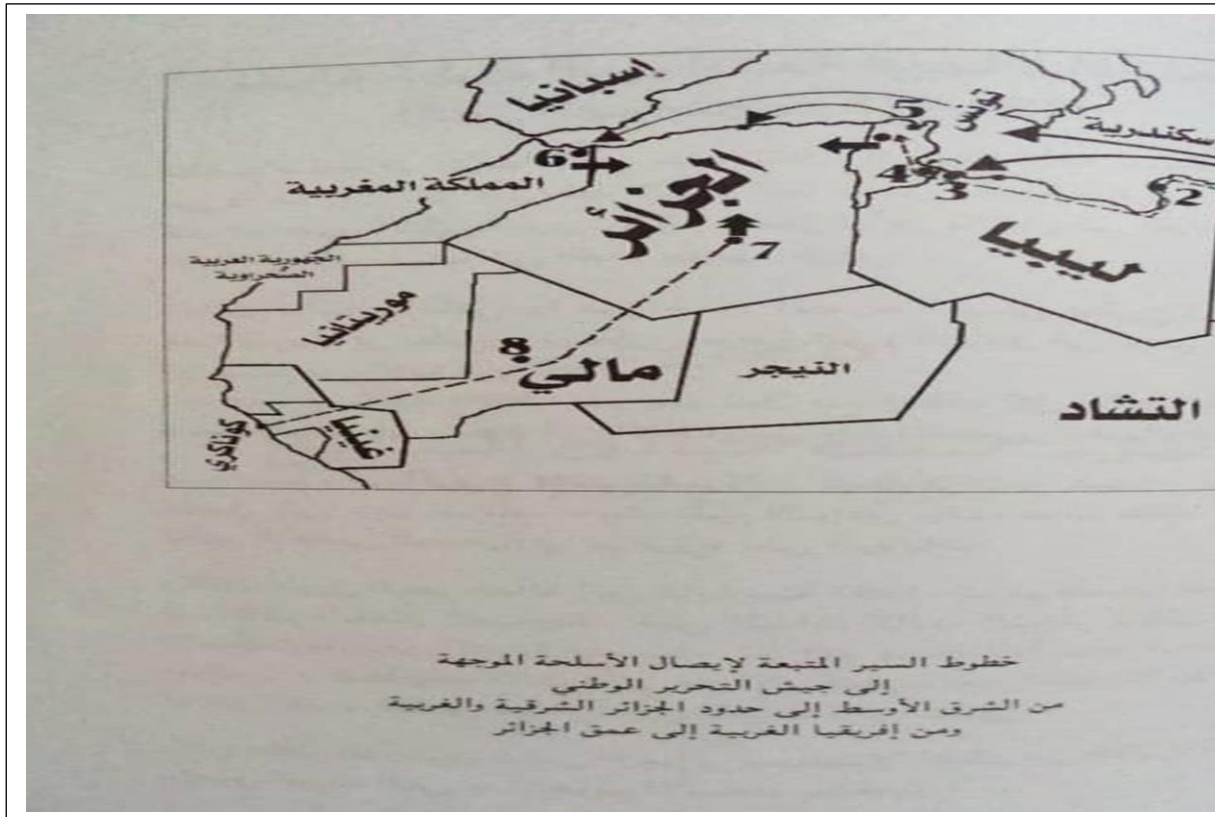 إسبانيا
تونس
سكندرية
5
6
4
3
2
المملكة المغربية
الجزائر
ليبيا
7
الجمهورية العربية
الصحراوية
موريتانيا
8
مالي
النيجر
التشاد
غينيا
كوناكري
خطوط السير المتبعة لإيصال الأسلحة الموجهة
إلى جيش التحرير الوطني
من الشرق الأوسط إلى حدود الجزائر الشرقية والغربية
ومن إفريقيا الغربية إلى عمق الجزائر